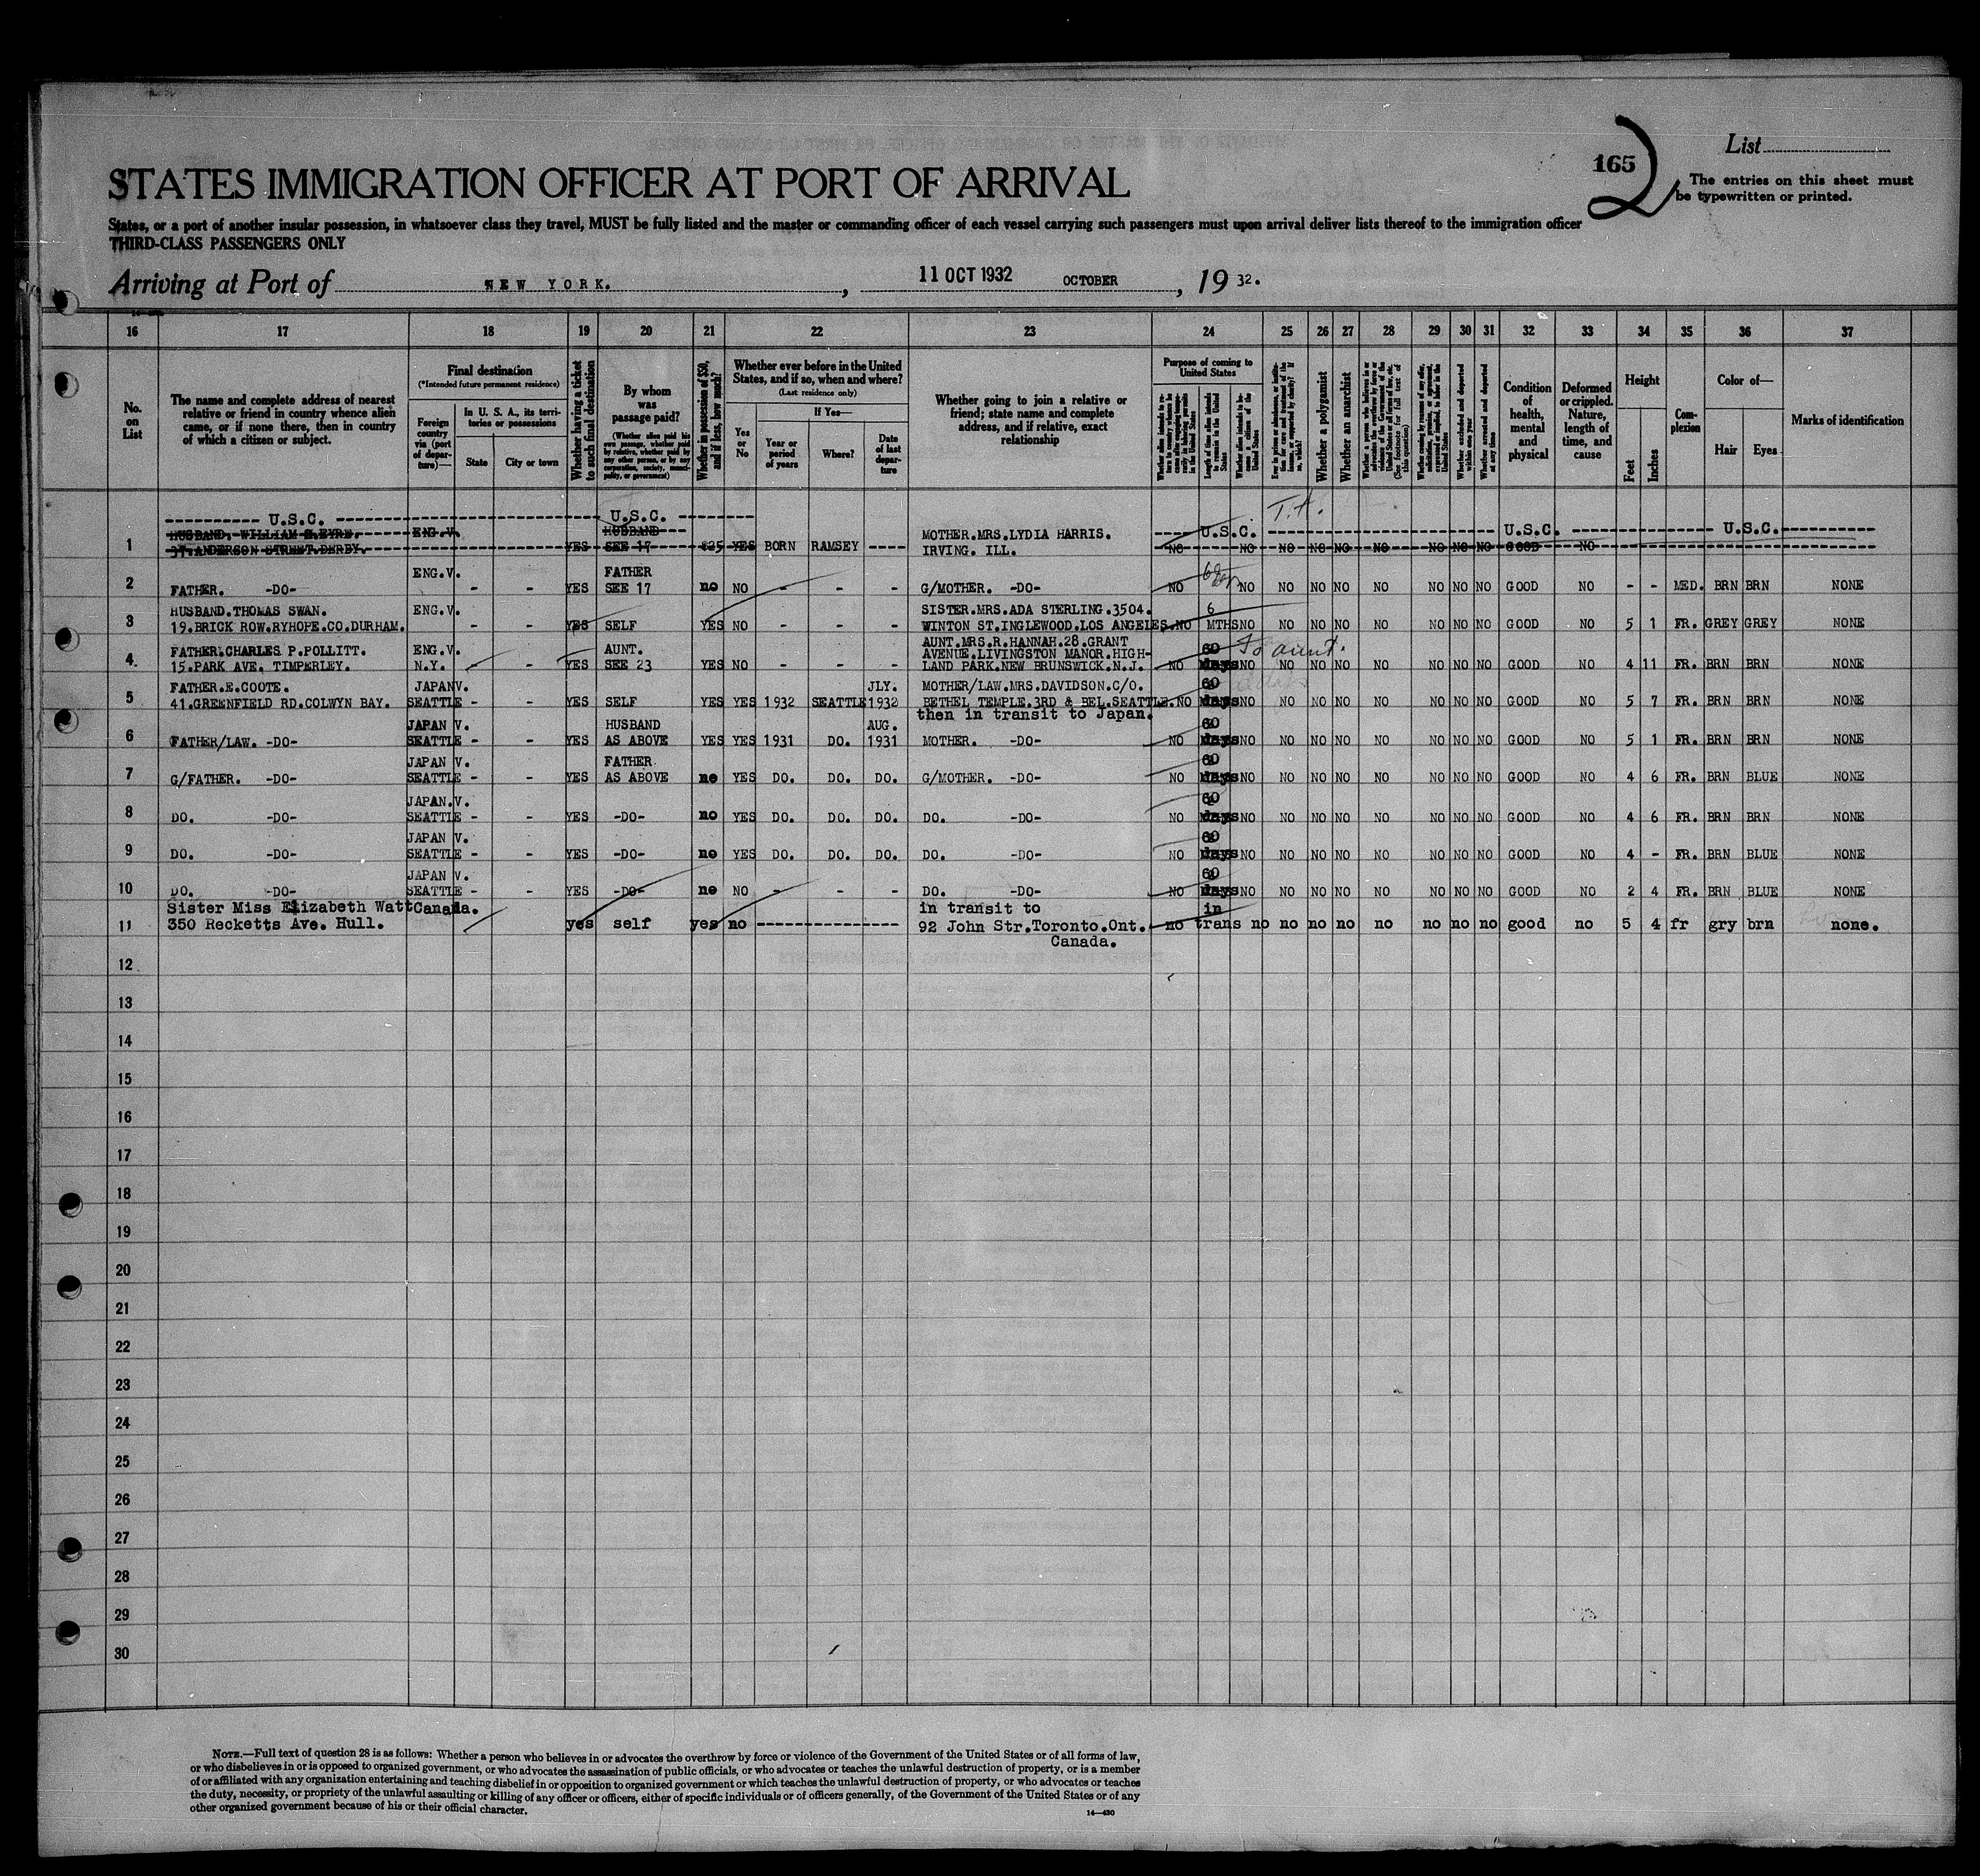 165
2
List
The entries on this sheet must
be typewritten or printed.
STATES IMMIGRATION OFFICER AT PORT OF ARRIVAL
States, or a port of another insular possession, in whatsoever class they travel, MUST be fully listed and the master or commanding officer of each vessel carrying such passengers must upon arrival deliver lists thereof to the immigration officer
THIRD-CLASS PASSENGERS ONLY
Arriving at Port of NEW YORK. , 11 OCT 1932 OCTOBER , 19 32.
16 17 18 19 20 21 22 23 24 25 26 27 28 29 30 31 32 33 34 35 36 37
No. on List
The name and complete address of nearest relative or friend in country whence alien came, or if none there, then in country of which a citizen or subject.
Final destination
(*Intended future permanent residence)
Foreign country via (port of departure)—
In U. S. A., its territories or possessions
State
City or town
Whether having a ticket to such final destination
By whom was passage paid?
(Whether alien paid his own passage, whether paid by relative, whether paid by any other person, or by any corporation, society, municipality, or government)
Whether in possession of $50, and if less, how much?
Whether ever before in the United States, and if so, when and where?
(Last residence only)
Yes or No
If Yes—
Year or period of years
Where?
Date of last departure
Whether going to join a relative or friend; state name and complete address, and if relative, exact relationship
Purpose of coming to United States
Length of time alien intends to remain in the United States
Whether alien intends to become a citizen of the United States
Whether a polygamist
Whether an anarchist
(See footnote for full text of this question)
Whether excluded and deported within one year
Whether arrested and deported at any time
Condition of health, mental and physical
Deformed or crippled. Nature, length of time, and cause
Height
Feet
Inches
Complexion
Color of—
Hair
Eyes
Marks of identification
U.S.C. U.S.C. T.A.
HUSBAND. WILLIAM ENG.V. HUSBAND MOTHER.MRS.LYDIA HARRIS. U.S.C. U.S.C. U.S.C.
1 37.ANDERSON STREET.DERBY. YES SEE 17 $25 YES BORN RAMSEY IRVING. ILL. NO NO NO NO NO NO NO NO NO GOOD NO
ENG.V. FATHER
2 FATHER. -DO- - - YES SEE 17 no NO - - - G/MOTHER. -DO- NO NO NO NO NO NO NO NO NO GOOD NO - - MED. BRN BRN NONE
HUSBAND.THOMAS SWAN. ENG.V. SISTER.MRS.ADA STERLING.3504. 6
3 19.BRICK ROW.RYHOPE.CO.DURHAM. - - YES SELF YES NO - - - WINTON ST.INGLEWOOD.LOS ANGELES. NO MTHS NO NO NO NO NO NO NO NO GOOD NO 5 1 FR. GREY GREY NONE
FATHER.CHARLES P.POLLITT. ENG.V. AUNT. AUNT.MRS.R.HANNAH.28.GRANT
AVENUE.LIVINGSTON MANOR.HIGH- 60 To aunt.
4. 15.PARK AVE. TIMPERLEY. N.Y. - - YES SEE 23 YES NO - - - LAND PARK.NEW BRUNSWICK.N.J. NO days NO NO NO NO NO NO NO NO GOOD NO 4 11 FR. BRN BRN NONE
FATHER.E.COOTE. JAPANV. JLY. MOTHER/LAW.MRS.DAVIDSON.C/O. 60
5 41.GREENFIELD RD.COLWYN BAY. SEATTLE - - YES SELF YES YES 1932 SEATTLE 1932 BETHEL TEMPLE.3RD & BEL.SEATTLE. NO days NO NO NO NO NO NO NO NO GOOD NO 5 7 FR. BRN BRN NONE
then in transit to Japan.
JAPAN V. HUSBAND AUG. 60
6 FATHER/LAW. -DO- SEATTLE - - YES AS ABOVE YES YES 1931 DO. 1931 MOTHER. -DO- NO days NO NO NO NO NO NO NO NO GOOD NO 5 1 FR. BRN BRN NONE
JAPAN V. FATHER 60
7 G/FATHER. -DO- SEATTLE - - YES AS ABOVE no YES DO. DO. DO. G/MOTHER. -DO- NO days NO NO NO NO NO NO NO NO GOOD NO 4 6 FR. BRN BLUE NONE
JAPAN.V. 60
8 DO. -DO- SEATTLE - - YES -DO- no YES DO. DO. DO. DO. -DO- NO days NO NO NO NO NO NO NO NO GOOD NO 4 6 FR. BRN BRN NONE
JAPAN V. 60
9 DO. -DO- SEATTLE - - YES -DO- no YES DO. DO. DO. DO. -DO- NO days NO NO NO NO NO NO NO NO GOOD NO 4 - FR. BRN BLUE NONE
JAPAN V. 60
10 DO. -DO- SEATTLE - - YES -DO- no NO - - - DO. -DO- NO days NO NO NO NO NO NO NO NO GOOD NO 2 4 FR. BRN BLUE NONE
Sister Miss Elizabeth Watt Canada. in transit to in
11 350 Recketts Ave. Hull. yes self yes no ------------- 92 John Str.Toronto.Ont. no trans no no no no no no no no good no 5 4 fr gry brn none.
Canada.
12
13
14
15
16
17
18
19
20
21
22
23
24
25
26
27
28
29
30
NOTE.—Full text of question 28 is as follows: Whether a person who believes in or advocates the overthrow by force or violence of the Government of the United States or of all forms of law,
or who disbelieves in or is opposed to organized government, or who advocates the assassination of public officials, or who advocates or teaches the unlawful destruction of property, or is a member
of or affiliated with any organization entertaining and teaching disbelief in or opposition to organized government or which teaches the unlawful destruction of property, or who advocates or teaches
the duty, necessity, or propriety of the unlawful assaulting or killing of any officer or officers, either of specific individuals or of officers generally, of the Government of the United States or of any
other organized government because of his or their official character.
14—430